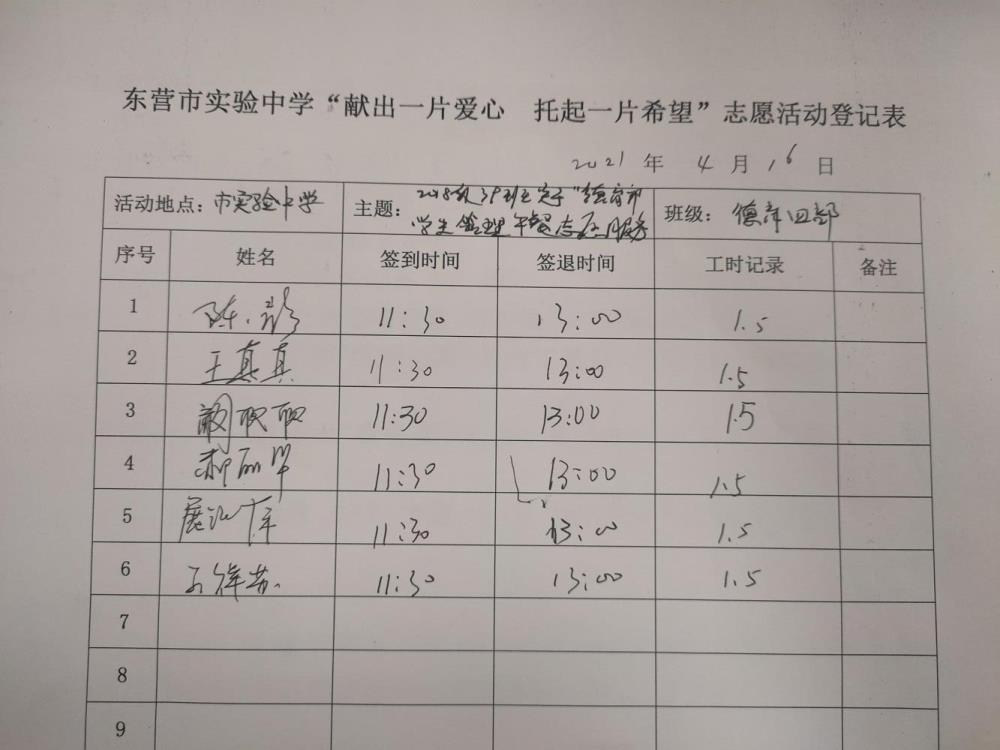 东营市实验中学“献出一片爱心 托起一片希望”志愿活动登记表
2021 年 4 月 16 日
活动地点：市实验中学 主题：2018级39班 学生管理 志愿服务 班级：德育四部
序号 姓名 签到时间 签退时间 工时记录 备注
1 陈 11:30 13:00 1.5
2 王真真 11:30 13:00 1.5
3 11:30 13:00 1.5
4 郝丽华 11:30 13:00 1.5
5 展 11:30 13:00 1.5
6 11:30 13:00 1.5
7
8
9